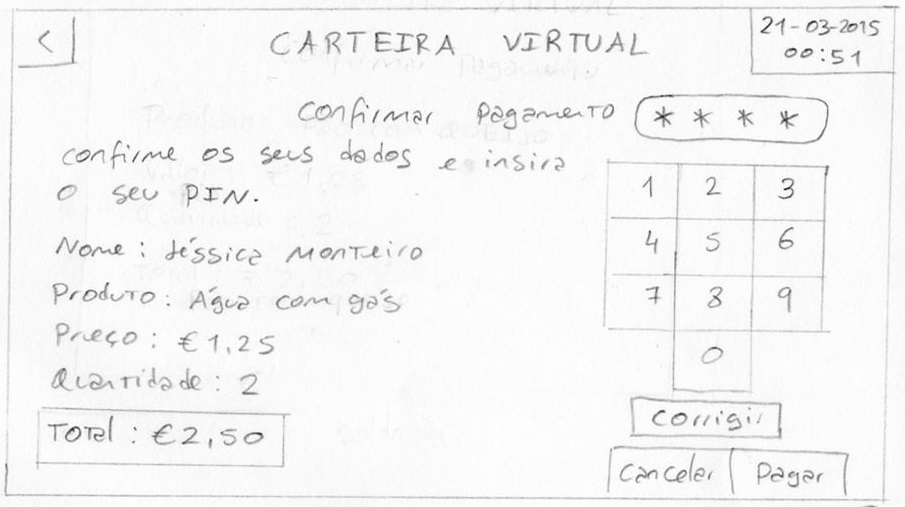 <
CARTEIRA VIRTUAL
21-03-2015
00:51
Confirmar Pagamento
* * * *
confirme os seus dados e insira
o seu PIN.
Nome: Jéssica Monteiro
Produto: Água com gás
Preço: €1,25
Quantidade: 2
Total: €2,50
1 2 3
4 5 6
7 8 9
0
Corrigir
Cancelar
Pagar